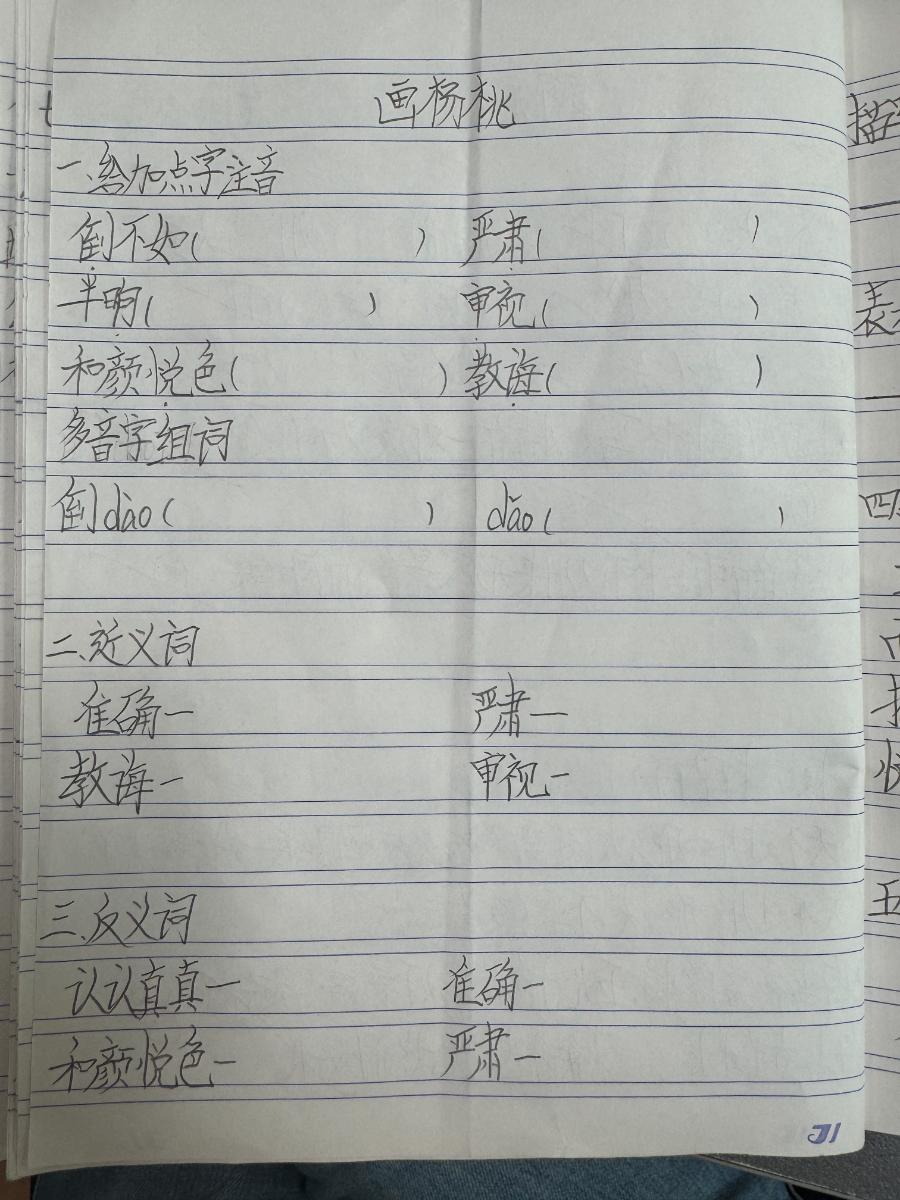 画杨桃
一.给加点字注音
倒不如( ) 严肃( )
半晌( ) 审视( )
和颜悦色( ) 教诲( )
多音字组词
倒dào( ) dǎo( )
二.近义词
准确— 严肃—
教诲— 审视—
三.反义词
认认真真— 准确—
和颜悦色— 严肃—
31
四
五